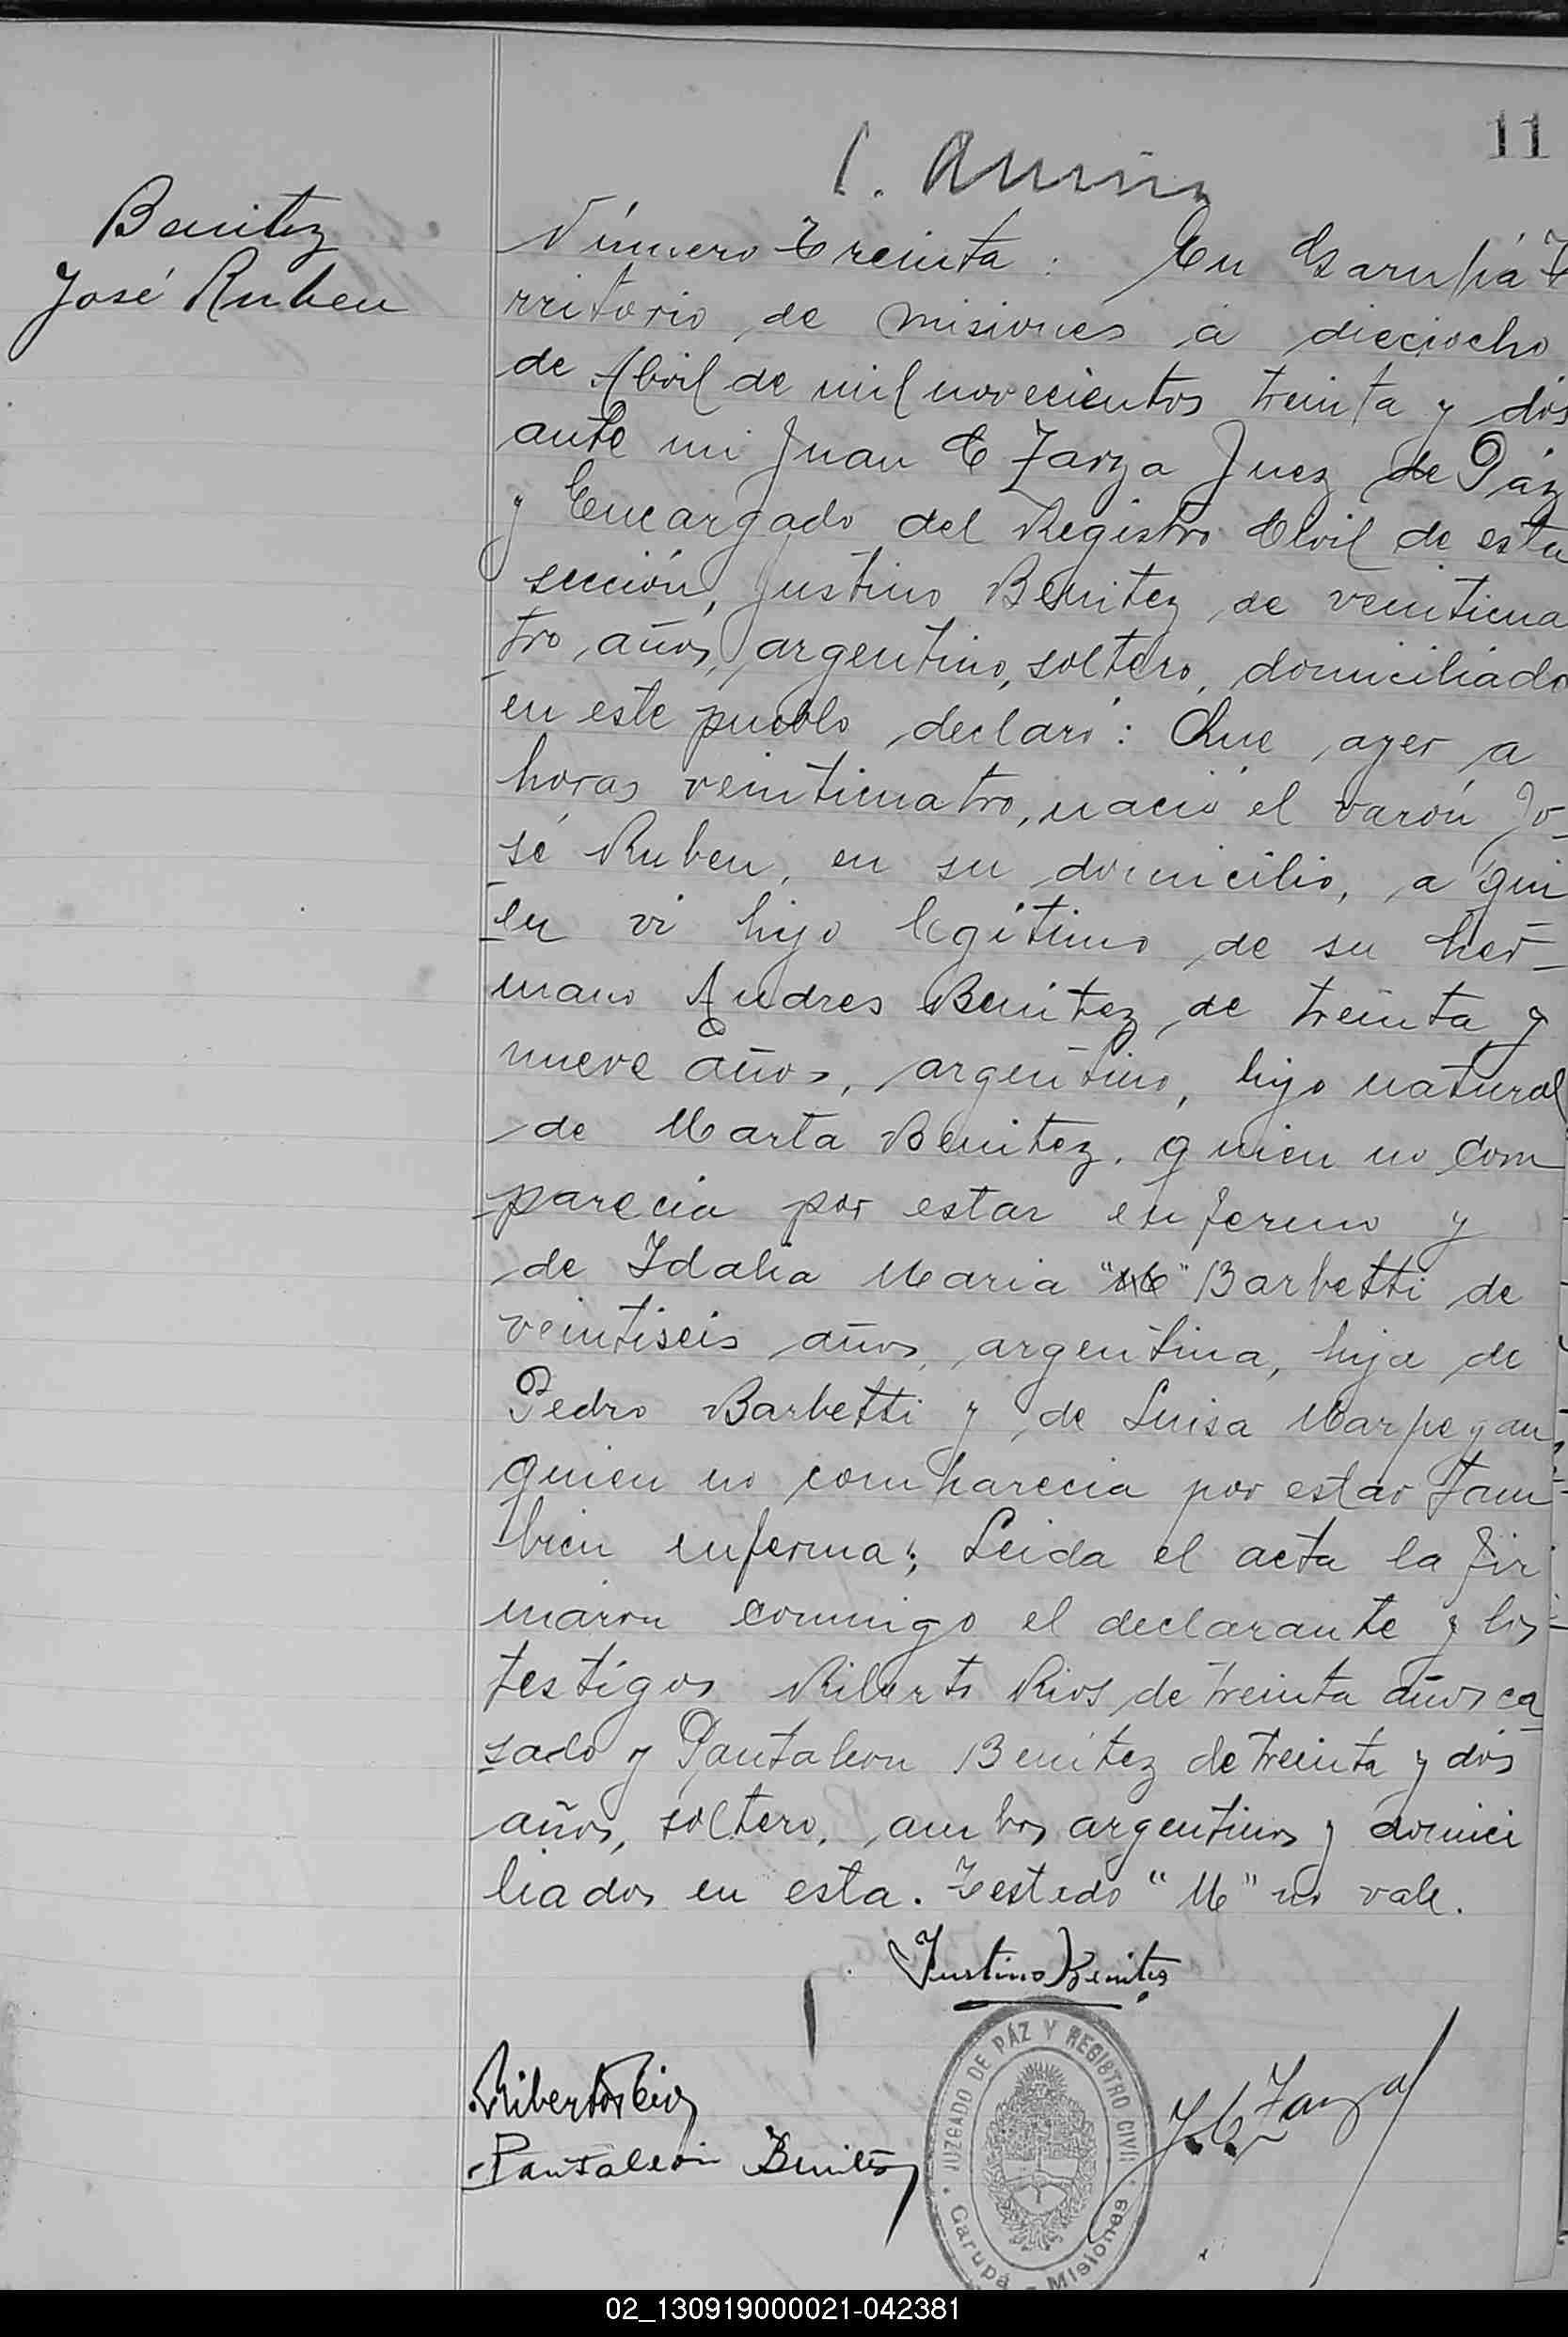 11
Benitez
José Ruben
Número Treinta : En Garupá Te
rritorio de Misiones a dieciocho
de Abril de mil novecientos treinta y dós
ante mi Juan E Zarza Juez de Páz
y Encargado del Registro Civil de esta
sección, Justino Benitez de veinticua
tro años, argentino, soltero, domiciliado
en este pueblo declaró: Que ayer a
horas veinticuatro, nació el varón Jo-
sé Ruben, en su domicilio, a qui
en vi hijo legítimo de su her-
mano Andres Benitez de treinta y
nueve años, argentino, hijo natural
de Marta Benitez. quien no com
parecia por estar enfermo y
de Idalia Maria "M" Barbetti de
veintiseis años, argentina, hija de
Pedro Barbetti y de Luisa Marpegan
quien no comparecia por estar tam
bien enferma; Leida el acta la fir
maron conmigo el declarante y los
testigos Riberto Rios de treinta años ca
sado y Pantaleon Benítez de treinta y dós
años, soltero, ambos argentinos y domici
liados en esta. Testado "M" no vale.
Justino Benitez
Riberto Rios
Pantaleón Benitez
J. E. Zarza
JUZGADO DE PÁZ Y REGISTRO CIVIL
Garupá - Misiones
02_130919000021-042381